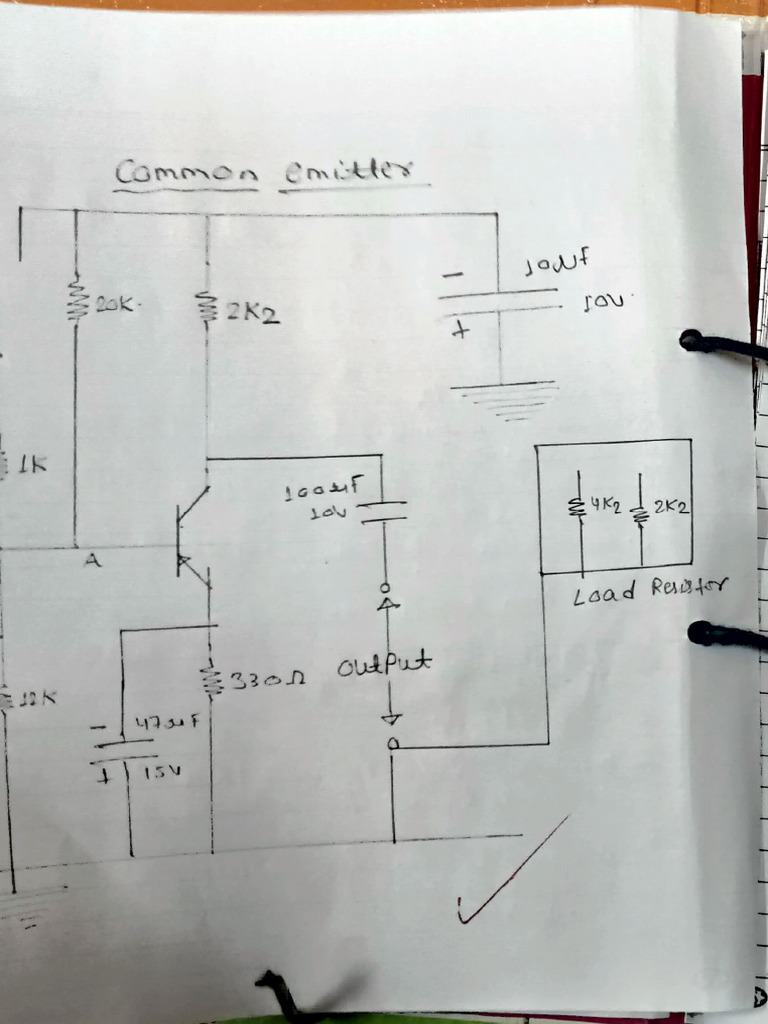 Common emitter
20K
2K2
-
10µF
10V
+
1K
100µF
10V
4K2
2K2
A
Load Resistor
330Ω
Output
12K
-
47µF
+
15V